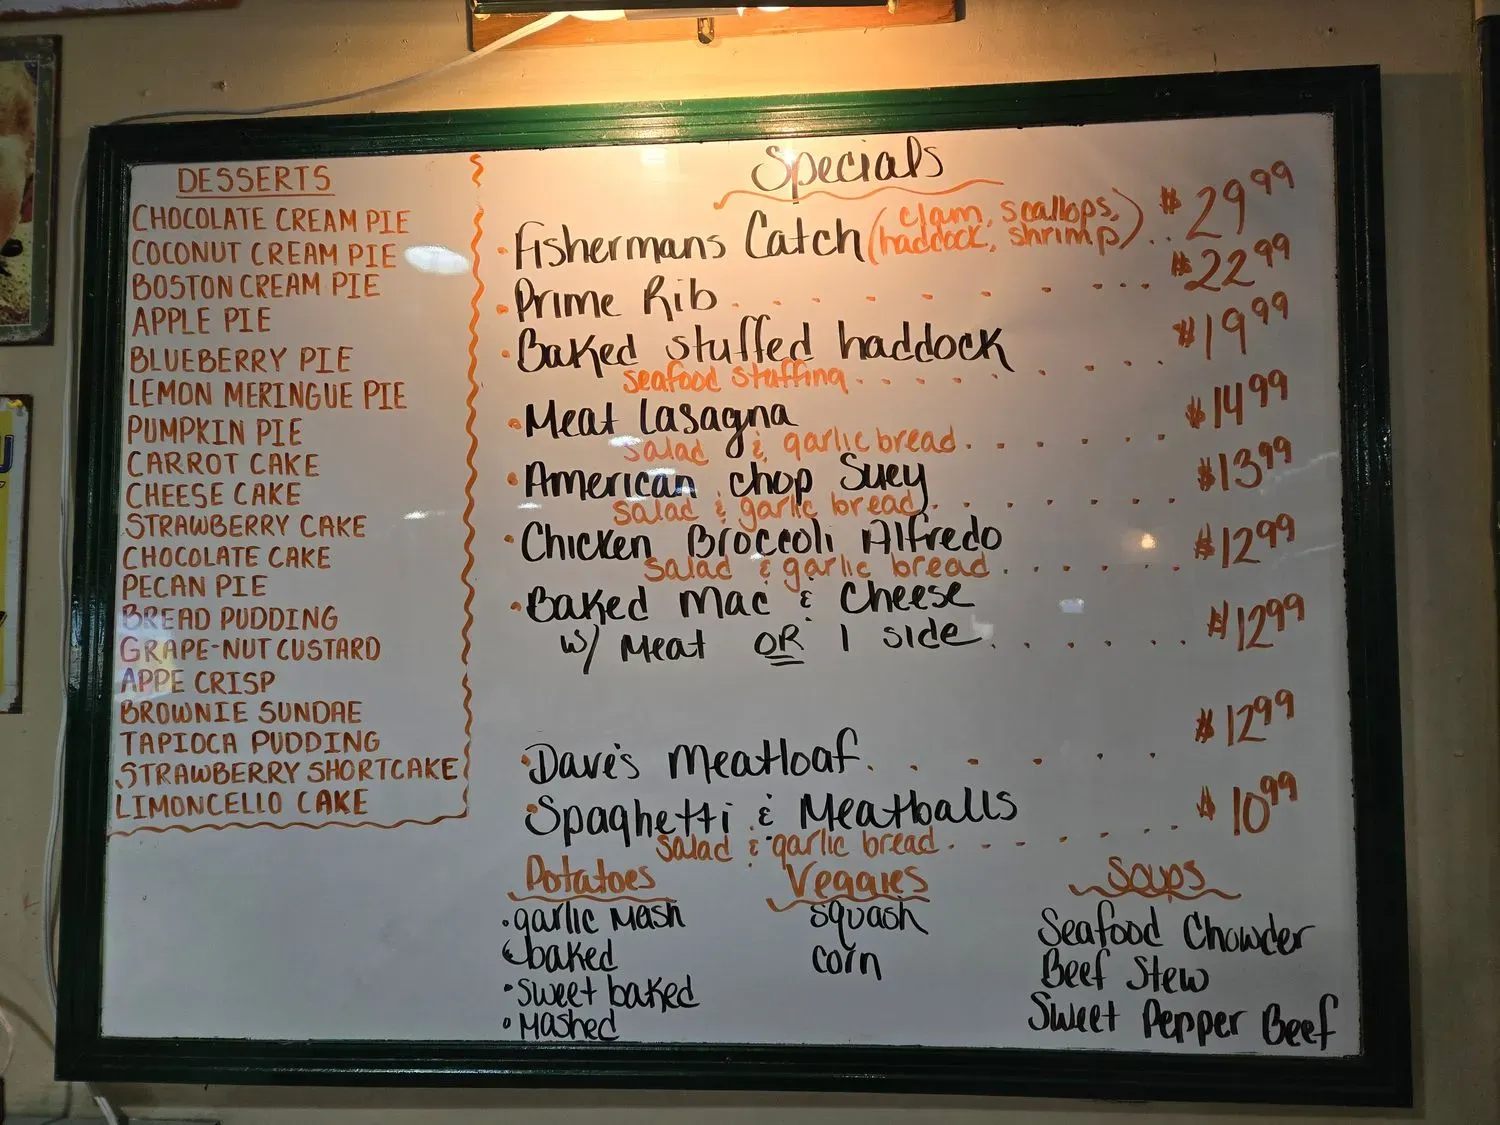 DESSERTS
CHOCOLATE CREAM PIE
COCONUT CREAM PIE
BOSTON CREAM PIE
APPLE PIE
BLUEBERRY PIE
LEMON MERINGUE PIE
PUMPKIN PIE
CARROT CAKE
CHEESE CAKE
STRAWBERRY CAKE
CHOCOLATE CAKE
PECAN PIE
BREAD PUDDING
GRAPE-NUT CUSTARD
APPE CRISP
BROWNIE SUNDAE
TAPIOCA PUDDING
STRAWBERRY SHORTCAKE
LIMONCELLO CAKE
Specials
• Fishermans Catch (clam, scallops, haddock, shrimp) .. $29.99
• Prime Rib . . . . . . . . . . $22.99
• Baked stuffed haddock
seafood stuffing . . . . . . . . . $19.99
• Meat lasagna
salad & garlic bread . . . . . . $14.99
• American chop Suey
salad & garlic bread . . . . . . . $13.99
• Chicken Broccoli Alfredo
salad & garlic bread . . . . . . $12.99
• Baked Mac & Cheese
w/ Meat OR 1 side . . . . . . $12.99
• Dave's Meatloaf . . . . . . $12.99
• Spaghetti & Meatballs
salad & garlic bread . . . . . . . $10.99
Potatoes
• garlic mash
• baked
• sweet baked
• Mashed
Veggies
squash
corn
Soups
Seafood Chowder
Beef Stew
Sweet Pepper Beef